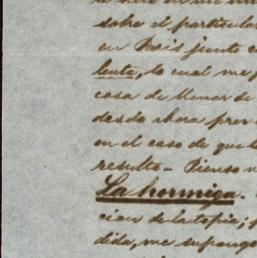 sobre el particular
en Paris junto c
lente, lo cual me p
cosa de Menor de
desde ahora prev
en el caso de que l
resulto - Pienso
La hormiga.
cion de la topia; 
dida, me supongo